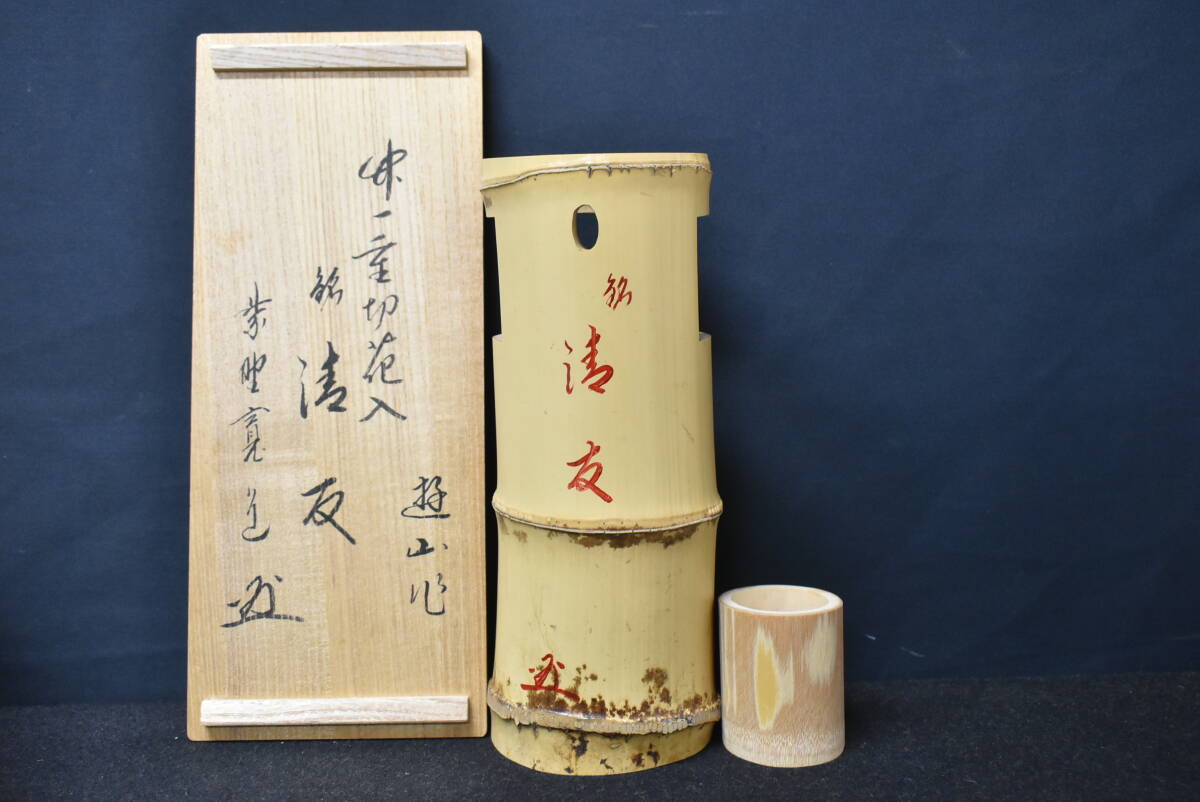 竹一重切花入
遊山作
銘
清友
紫野寛道
銘
清友